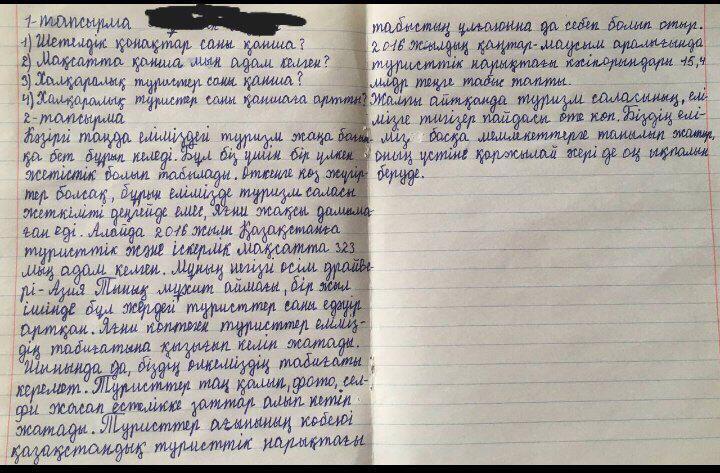 1-тапсырма
1) Шетелдік қонақтар саны қанша?
2) Мақсатта қанша мың адам келген?
3) Халқаралық туристер саны қанша?
4) Халқаралық туристер саны қаншаға артты?
2-тапсырма
Қазіргі таңда еліміздегі туризм жаңа бағыт-
қа бет бұрып келеді. Бұл біз үшін бір үлкен
жетістік болып табылады. Өткенге көз жүгір-
тер болсақ, бұрын елімізде туризм саласы
жеткілікті деңгейде емес, яғни жақсы дамыма-
ған еді. Алайда 2016 жылы Қазақстанға
туристтік және іскерлік мақсатта 323
мың адам келген. Мұның негізгі өсім драйве-
рі-Азия Тынық мұхит аймағы, бір жыл
ішінде бұл жердей туристтер саны едәуір
артқан. Яғни көптеген туристтер еліміз-
дің табиғатына қызығып келіп жатады.
Шынында да, біздің өлкеміздің табиғаты
керемет. Туристтер таң қалып, фото, сел-
фи жасап естелікке заттар алып кетіп
жатады. Туристтер ағынының көбеюі
қазақстандық туристтік нарықтағы
табыстың ұлғаюына да себеп болып отыр.
2016 жылдың қаңтар-маусым аралығында
туристтік нарықтағы кәсіпорындары 15,4
млдр теңге табыс тапты.
Жалпы айтқанда туризм саласының, елі-
мізге тигізер пайдасы өте көп. Біздің елі-
міз басқа мемлекеттерге танылып жатыр,
оның үстіне қаржылай жері де оң ықпалын
беруде.